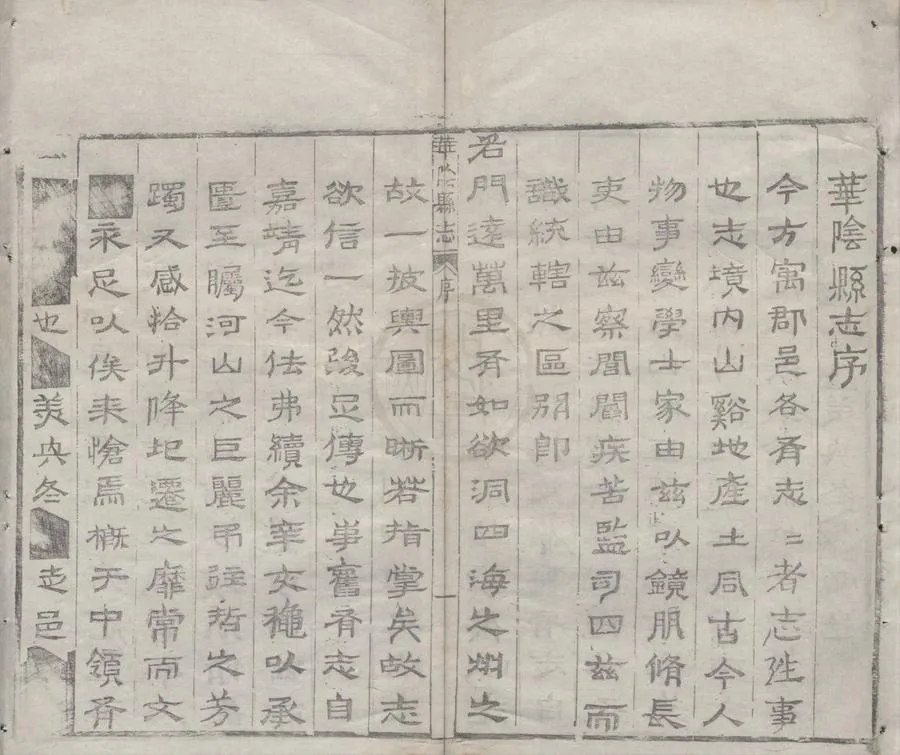 華陰縣志序
今方寓郡邑各有志〻者志往事
也志境內山谿地產土風古今人
物事變學士家由茲以鏡朋脩長
吏由茲察閭閻疾苦監司四茲而
識統轄之區別即
君門遠萬里有如欲洞四海之州之
華陰縣志 序 一
故一披輿圖而晰若指掌矣故志
欲信一然後足傳也華舊有志自
嘉靖迄今佚弗續余幸攵龝以承
匱至矚河山之巨麗弔往哲之芳
躅又感於升降圮遷之靡常而文
永足以俟来愴焉概于中領有
也 美央冬 走邑